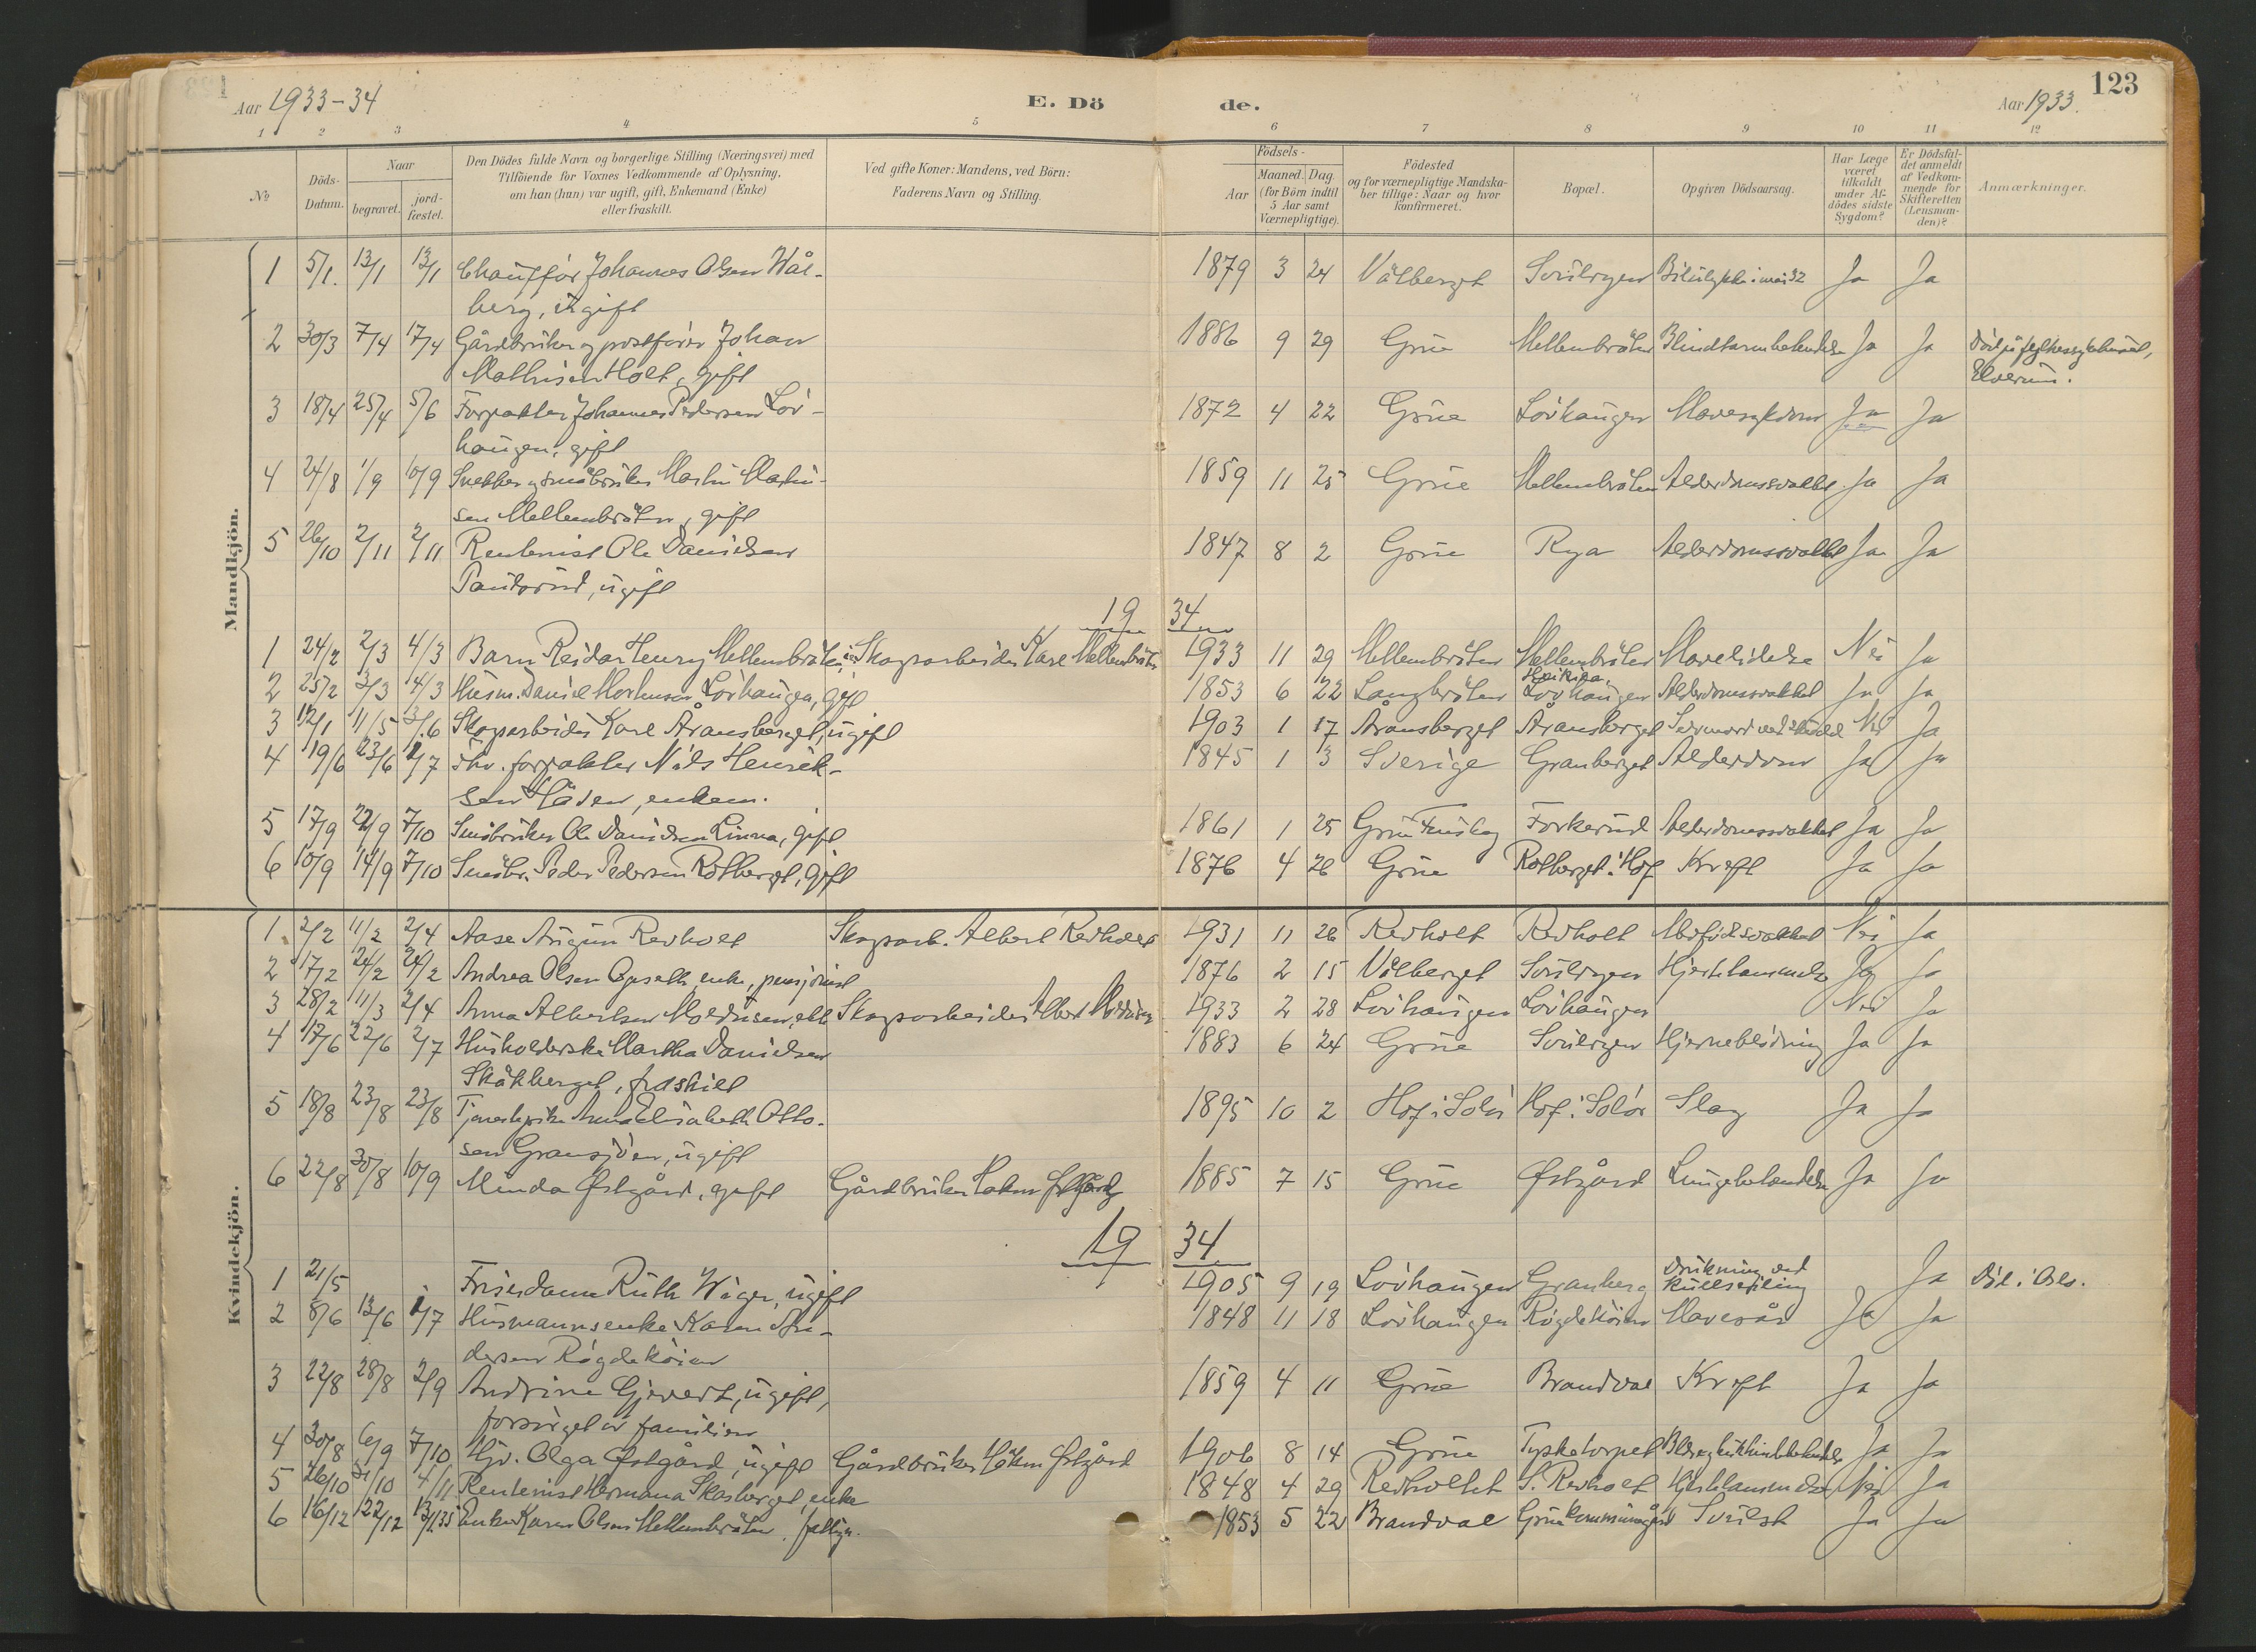 Aar 1933-34 E. Dö de. Aar 1933. 123
1 2 3 4 5 6 7 8 9 10 11 12
№
Döds-Datum.
Naar
begravet.
jord-fæstet.
Den Dödes fulde Navn og borgerlige Stilling (Næringsvei) med
Tilföiende for Voxnes Vedkommende af Oplysning,
om han (hun) var ugift, gift, Enkemand (Enke)
eller fraskilt.
Ved gifte Koner: Mandens, ved Börn:
Faderens Navn og Stilling.
Födsels-
Aar
Maaned. Dag.
(for Börn indtil
5 Aar samt
Værnepligtige).
Födested
og for værnepligtige Mandska-
ber tillige: Naar og hvor
konfirmeret.
Bopæl.
Opgiven Dödsaarsag.
Har Læge
været
tilkaldt
under Af-
dödes sidste
Sygdom?
Er Dödsfal-
det anmeldt
af Vedkom-
mende for
Skifteretten
(Lensman-
den)?
Anmærkninger.
Mandkjön.
1 5/1. 13/1 13/1 Chauffør Johannes Olsen Vål- 1879 3 24 Vålberget Svullryen Bilulykke i mai 32 Ja Ja
berg, ugift
2 30/3 7/4 17/4 Gårdbruker og postfører Johan 1886 9 29 Grue Mellembråten Blindtarmbetendelse Ja Ja Død på fylkessykehuset,
Mathisen Holt, gift Elverum.
3 18/4 25/4 5/6 Forpakter Johannes Pedersen Løv- 1872 4 22 Grue Løvhaugen Mavesykdom Ja Ja
haugen, gift
4 24/8 1/9 10/9 Snekker og småbruker Martin Martin- 1859 11 25 Grue Mellembråten Alderdomssvakhet Ja Ja
sen Mellembråten, gift
5 26/10 2/11 2/11 Rentenist Ole Danielsen 1847 8 2 Grue Rya Alderdomssvakhet Ja Ja
ugift
19 34
1 24/2 2/3 4/3 Barn Reidar Henry Mellembråten Skogsarbeider Karl Mellembråten 1933 11 29 Mellembråten Mellembråten Mavelidelse Nei Ja
2 25/2 3/3 4/3 Husm. Daniel Mortensen Løvhaugen, gift 1853 6 22 Langbråten Løvhaugen Alderdomssvakhet Ja Ja
3 12/1 11/5 3/6 Skogsarbeider Karl Åransberget, ugift 1903 1 17 Åransberget Åransberget Selvmord ved Nei Ja
4 19/6 23/6 1/7 fhv. forpakter Nils Henrik- 1845 1 3 Sverige Granberget Alderdom Ja Ja
sen enkem.
5 17/9 22/9 7/10 Småbruker Ole Danielsen Linna, gift 1861 1 25 Grue Finskog Forkerud Alderdomssvakhet Ja Ja
6 10/9 14/9 7/10 Småbr. Peder Pedersen Rotberget, gift 1876 4 26 Grue Rotberget i Hof Kreft Ja Ja
Kvindekjön.
1 2/2 11/2 2/4 Aase Augun Revholt Skogsarb. Albert Revholt 1931 11 26 Revholt Revholt Medfødt svakhet Nei Ja
2 17/2 24/2 24/2 Andrea Olsen Opseth, enke, pensjonist 1876 2 15 Vålberget Svullryen Hjertelammelse Ja Ja
3 28/2 11/3 2/4 Anna Albertsen Moldusen, Skogsarbeider Albert Moldusen 1933 2 28 Løvhaugen Løvhaugen Nei Ja
4 17/6 22/6 2/7 Husholderske Martha Danielsen 1883 6 24 Grue Svullryen Hjerneblødning Ja Ja
Skåkberget, fraskilt
5 18/8 23/8 23/8 Tjenestepike Anna Elisabeth Otto- 1895 10 2 Hof i Solør Hof i Solør Slag Ja Ja
sen Gransjøen, ugift
6 22/8 30/8 10/9 Minda Østgård, gift Gårdbruker Håkon Østgård 1885 7 15 Grue Østgård Lungebetendelse Ja Ja
19 34
1 21/5 Friserdame Ruth Wiger, ugift 1905 9 19 Løvhaugen Granberg Drukning ved kullseiling Ja Død i Oslo.
2 8/6 13/6 1/7 Husmannsenke Karen 1848 11 18 Løvhaugen Røgdekøien Mavesår Ja Ja
dersen Røgdekøien
3 22/8 28/8 2/9 Andrine Gjevert, ugift, 1859 4 11 Grue Brandval Kreft Ja Ja
forsørget av familien
4 30/8 6/9 7/10 Hjv. Olga Østgård, ugift Gårdbruker Håkon Østgård 1906 8 14 Grue Tysketorpet Ja Ja
5 26/10 31/10 4/11 Rentenist Hermana Skasberget, enke 1848 4 29 Revholtet S. Revholt Hjertelammelse Nei Ja
6 16/12 22/12 13/1.35 Enke Karen Olsen Mellembråten, fattig. 1853 5 22 Brandval Grue kommunegård Svulst Ja Ja